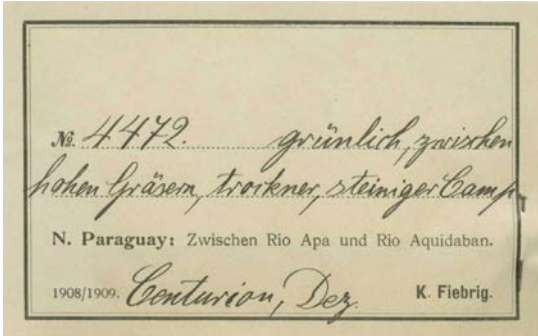 № 4472. grünlich, zwischen
hohen Gräsern, trockner, steiniger Camp
N. Paraguay: Zwischen Rio Apa und Rio Aquidaban.
1908/1909. Centurion, Dez. K. Fiebrig.